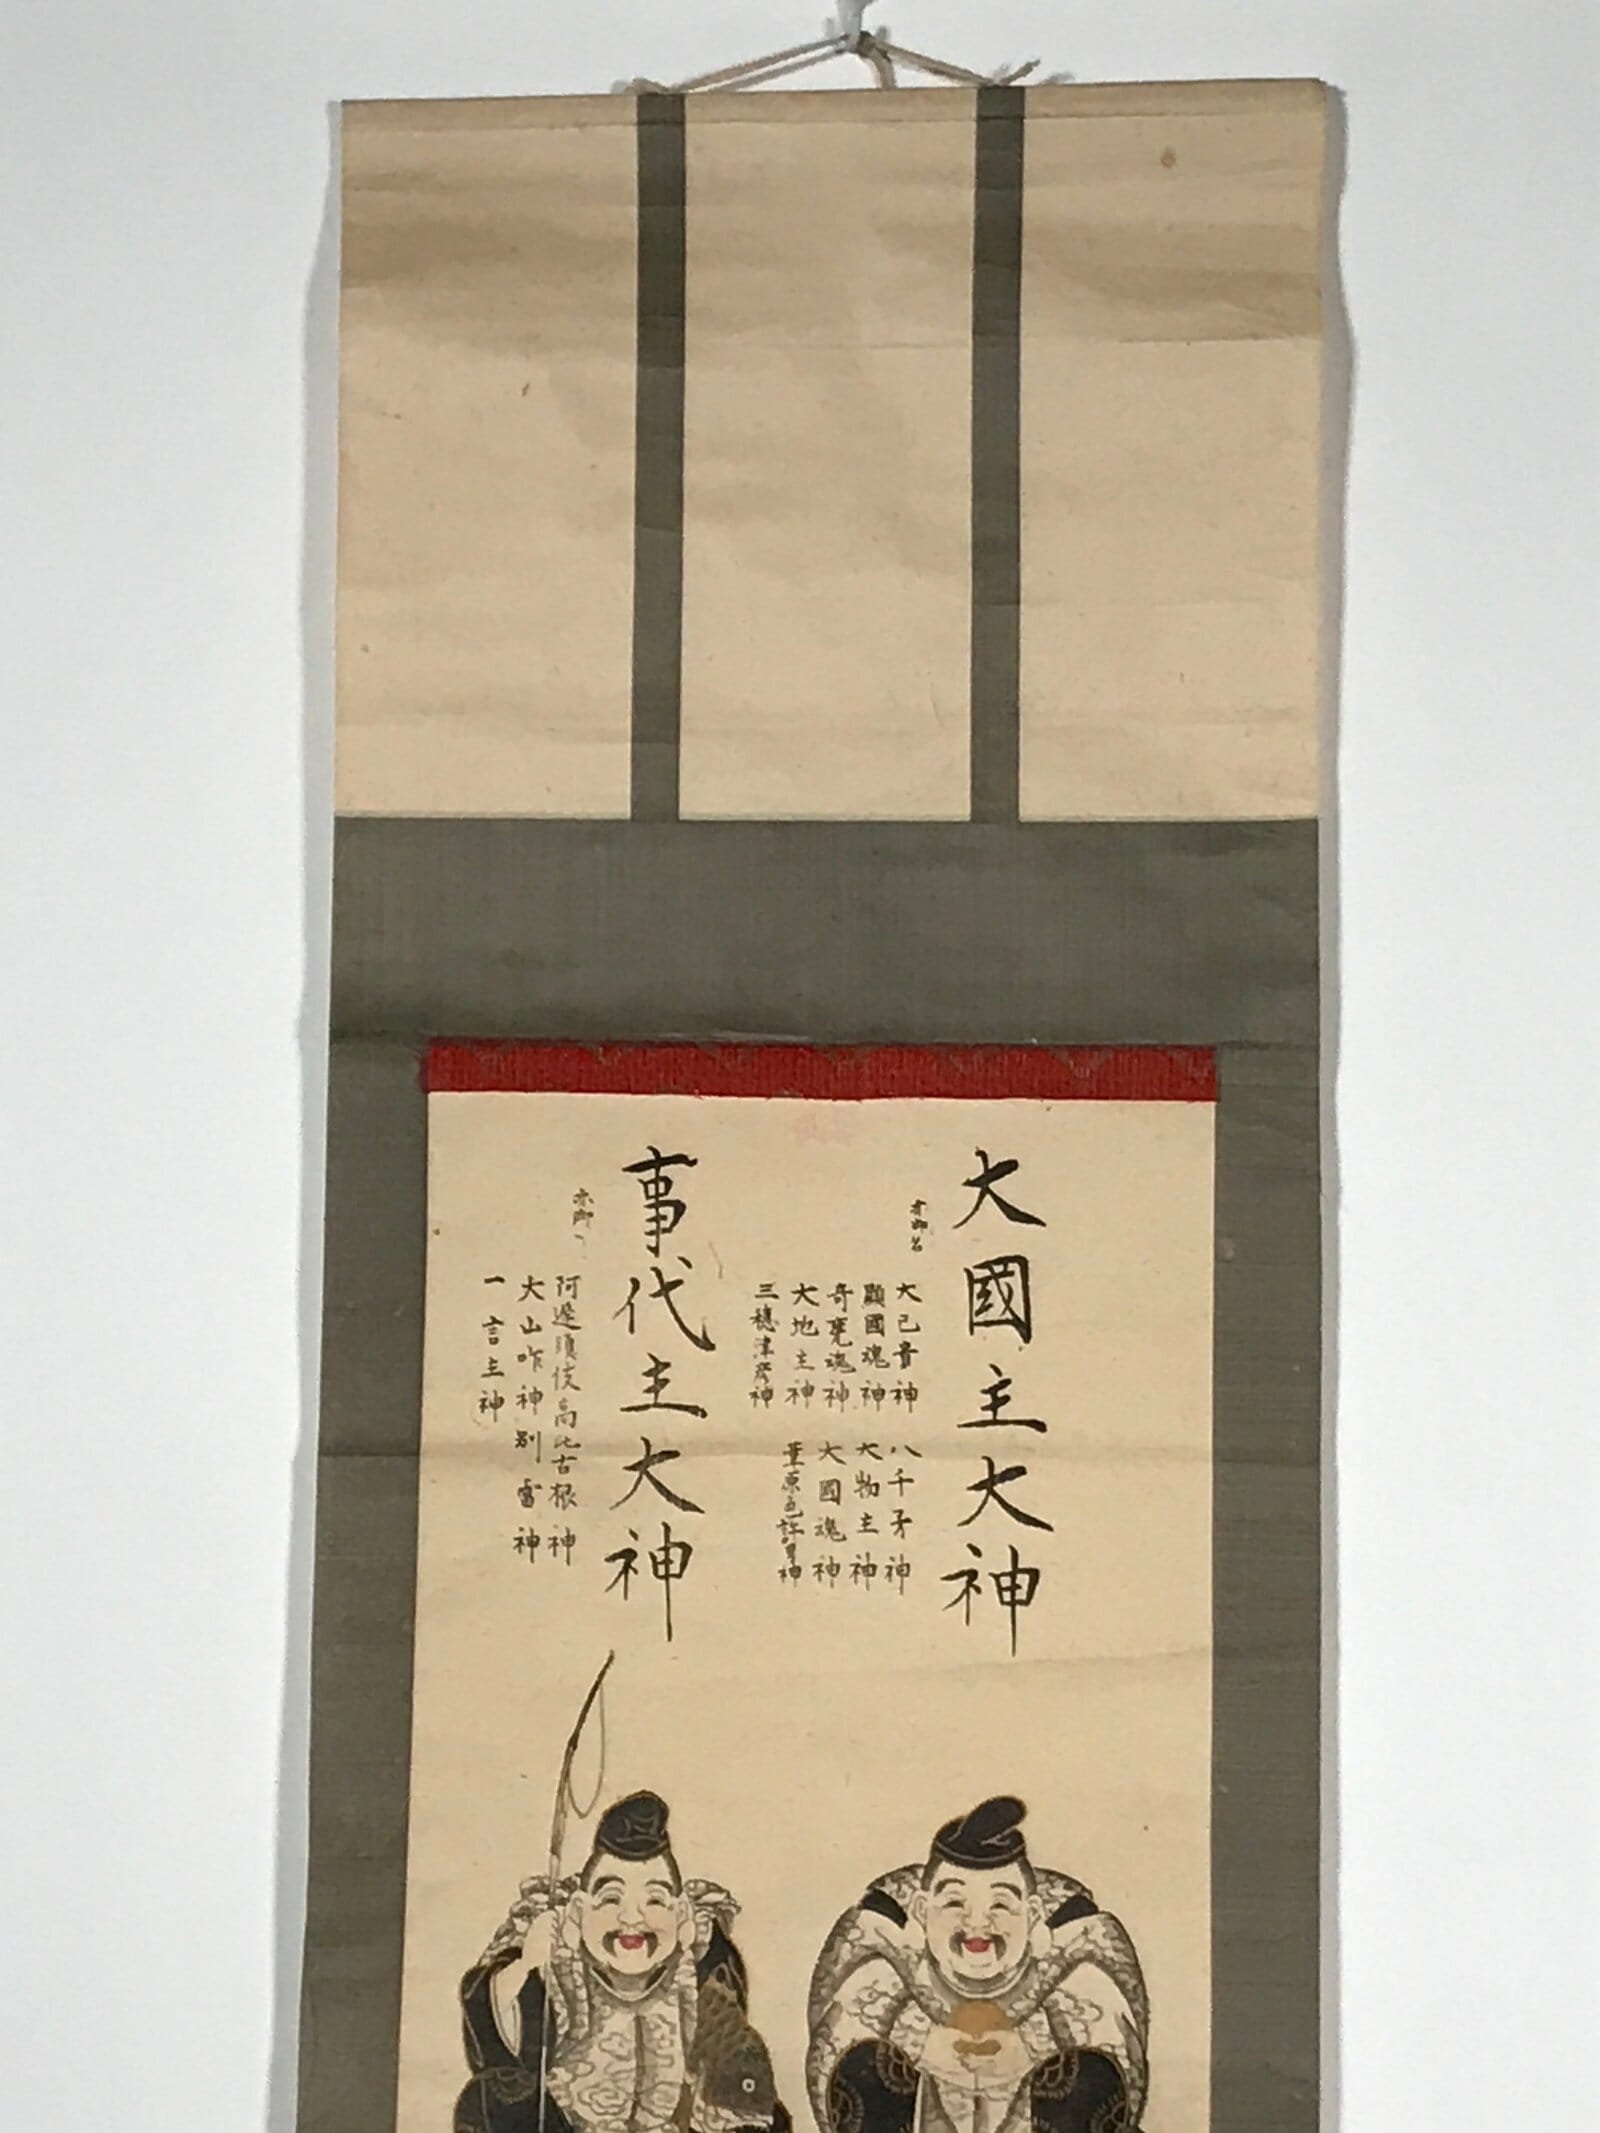 大國主大神
亦御名
大己貴神
八千矛神
顕國魂神
大物主神
奇甕魂神
大國魂神
大地主神
葦原色許男神
三穂津彦神
事代主大神
亦御
阿遲須伎高比古根神
大山咋神別雷神
一言主神